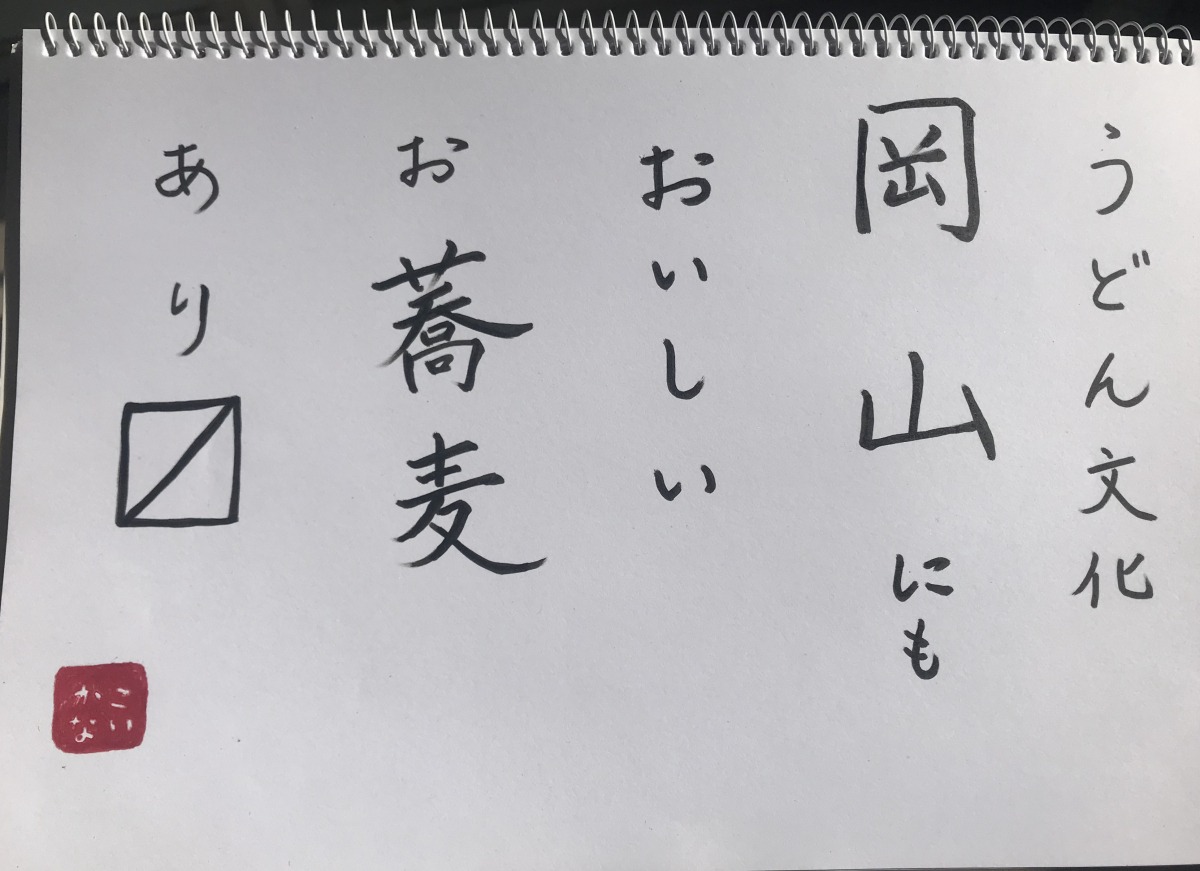 うどん文化
岡山にも
おいしい
お蕎麦
あり〼
こい
かな